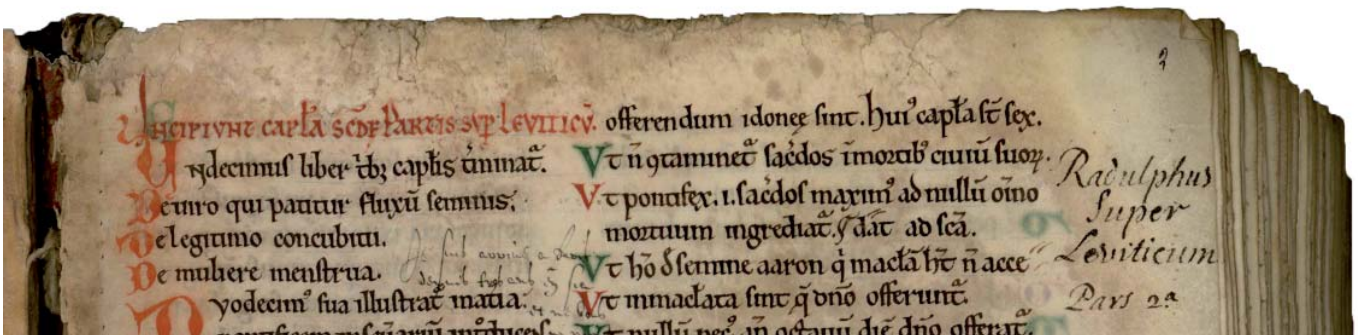 2
INCIPIVNT CAPŁA SCDE PARTIS SVP LEVITICV̄.
Vndecimus liber tͥbꝫ capłis tͥminat᷑.
De uiro qui patitur fluxū seminis.
De legitimo concubitu.
De muliere menstrua.
Dvodecimꝰ sua illustrat᷑ matia.
offerendum idoneę sint. huiꝰ capła sт̄ sex.
Vt n̄ ꝯtaminet᷑ sac̄dos ī mortibꝰ ciuiū suoꝝ.
Vt pontifex .i. sac̄dos maximꝰ ad nullū om̄o
mortuum ingrediat᷑. dāt ad sc̄a.
Vt hō de semine aaron q̇ macłā hт̄ n̄ acce
Vt inmacłata sint q̄ dn̄o offerunt᷑.
Vt nullū pecꝰ an̄ octauū diē dn̄o offerat᷑.
Radulphus
Super
Leviticum
Pars 2a